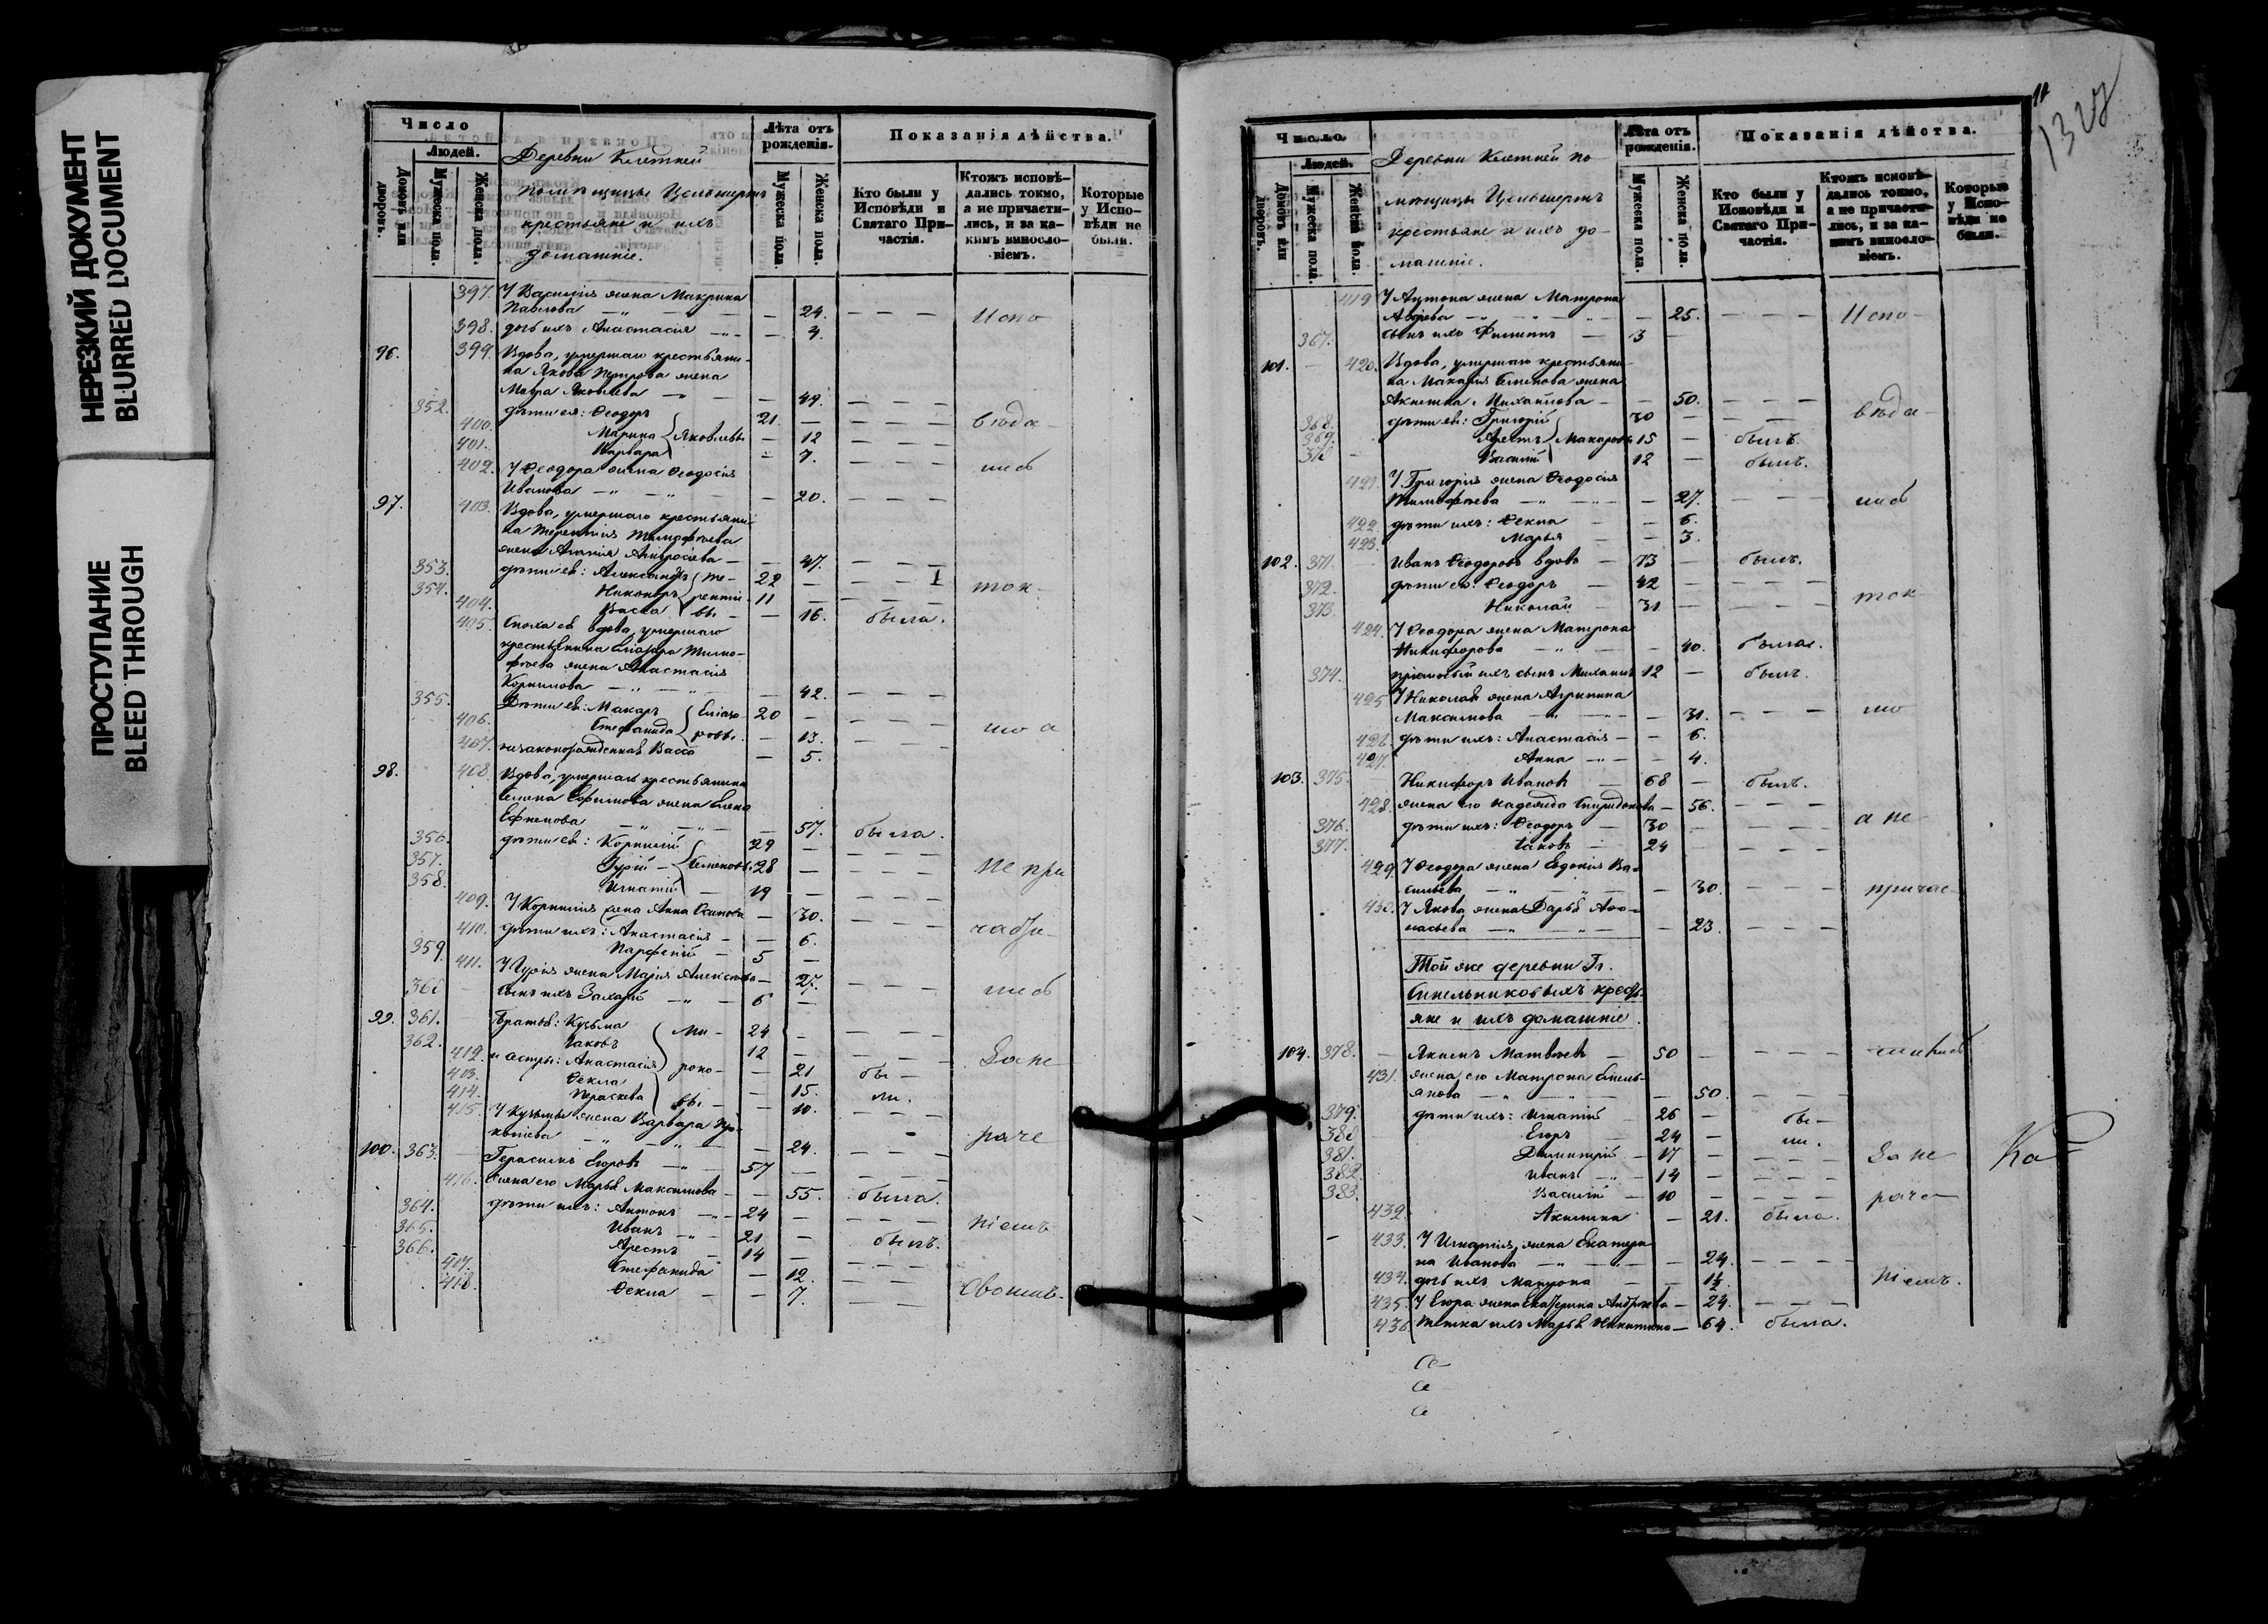 НЕРЕЗКИЙ ДОКУМЕНТ
BLURRED DOCUMENT
ПРОСТУПАНИЕ
BLEED THROUGH
Число
Людей.
Домовъ или дворовъ.
Мужеска пола.
Женска пола.
Деревни Клетней
помѣщицы
крестьяне и ихъ
домашніе.
Лѣта отъ рожденія.
Мужеска пола.
Женска пола.
Показанія дѣйства.
Кто были у Исповѣди и Святаго Причастія.
Ктожъ исповѣдались токмо, а не причастились, и за какимъ винословіемъ.
Которые у Исповѣди не были.
397. У Василія жена Макрина
Павлова — 24. — — — Испо
398. дочь ихъ Анастасія — 4.
96. 399. Вдова, умершаго крестьяни-
на Якова Петрова жена
Мавра Яковлева — 49. — — —
352. дѣти ея: Ѳеодоръ 21 — — — — вѣда
400. Марина Яковлевы — 12 — — —
401. Варвара — 7. — — —
402. У Ѳеодора жена Ѳеодосія лись
Иванова — 20. — — —
97. 403. Вдова, умершаго крестьяни-
на Терентія Тимофѣева
жена Агапія Амвросіева — 47. — — —
353. дѣти ея: Александръ Те- 22 — — — ток-
354. Никаноръ рентіе- 11 — — —
404. Васса вы — 16. была.
405. Сноха ея вдова, умершаго
крестьянина Елизара Тимо-
фѣева жена Анастасія
Корнилова — 42. — — —
355. Дѣти ея: Макаръ Елиза- 20 — — — —
406. Стефанида ровы. — 13. — — — мо а
407. незаконорожденная Васса — 5. — — —
98. 408. Вдова, умершаго крестьянина
Семена Ефимова жена Елена
Ефимова — 57. была.
356. дѣти ея: Корнилій 29 — — — —
357. Гурій — Семеновы. 28 — — — — не при
358. Игнатій — 19 — — — —
409. У Корнилія жена Анна Осипова — 30. — — —
410. дѣти ихъ: Анастасія — — 6.
359. Парфеній — 5 —
411. У Гурія жена Марія Алексѣева — 27. — — —
360 сынъ ихъ Захарій — 6 — лись
99. 361. Братья: Кузьма Ми- 24 — — — —
362. Іаковъ 12 — — — —
412. и сестры: Анастасія роно- — 21 бы — За не
413. Ѳекла — 15. ли.
414. Параскева вы — — 10. — — —
415. У Кузьмы жена Варвара Про-
копіева — 24. — — — раче
100. 363. Герасимъ Егоровъ — 57 — — — —
416. Жена его Марья Максимова — — 55. была.
364. дѣти ихъ: Антонъ — 24 — — — — ніемъ
365. Иванъ — 21 — былъ.
366. Арестъ — 14 — — — —
417. Стефанида — 12. — — —
418. Ѳекла — — 7. — — — своимъ.
Число
Людей.
Домовъ или дворовъ.
Мужеска пола.
Женска пола.
Деревни Клетней по
мѣщицы
крестьяне и ихъ до-
машніе.
Лѣта отъ рожденія.
Мужеска пола.
Женска пола.
Показанія дѣйства.
Кто были у Исповѣди и Святаго Причастія.
Ктожъ исповѣдались токмо, а не причастились, и за какимъ винословіемъ.
Которые у Исповѣди не были.
419 У Антона жена Матрона
Авдіева — 25. — — — Испо
367. сынъ ихъ Филиппъ — 3 —
101. — 420. Вдова, умершаго крестьяни-
на Макарія Семенова жена
Акилина Михайлова — — 50. — — —
368. дѣти ея: Григорій 30 — — — — вѣда-
369. Арестъ Макаровы 15 — былъ.
370 Василій 12 — былъ.
421. У Григорія жена Ѳеодосія
Тимофѣева — 27. — — — лись
422. дѣти ихъ: Ѳекла — — 6.
423. Марья — — 3.
102. 371. Иванъ Ѳеодоровъ вдовъ — 73 — былъ.
372. дѣти его: Ѳеодоръ — 42 — — — — ток-
373. Николай — 31 — — — —
424. У Ѳеодора жена Матрона
Никифорова — 40. была.
374. пріемный ихъ сынъ Михаилъ 12 — былъ.
425 У Николая жена Агрипина
Максимова — 31. — — — мо
426. дѣти ихъ: Анастасія — — 6.
427. Анна — — 4.
103. 375. Никифоръ Ивановъ — 68 — былъ.
428. жена его Надежда Спиридонова — 56. — — —
376. дѣти ихъ: Ѳеодоръ — 30 — — — — а не
377. Іаковъ — 24 — — — —
429. У Ѳеодора жена Евдокія Ва-
сильева — 30. — — — причас
430. У Якова жена Дарья Аѳа-
насьева — 23. — — —
Той же деревни Гг.
Синельниковыхъ кресть-
яне и ихъ домашніе.
104. 378. — Якимъ Матвѣевъ — 50 — — — —
431. жена его Матрона Емель-
янова — 50. — — —
379. дѣти ихъ: Игнатій — 26 — бы —
380 Егоръ — 24 — ли.
381. Димитрій — 17 — — — — За не
382. Иванъ — 14 — — — —
383. Василій — 10 — — — — раче-
432. Акилина — 21. была.
433. У Игнатія жена Екатери
на Иванова — 24. — — —
434. дочь ихъ Матрона — — 1½. ніемъ.
435. У Егора жена Екатерина Андреева — 24. — — —
436. тетка ихъ Марья Никитина — 64. была.